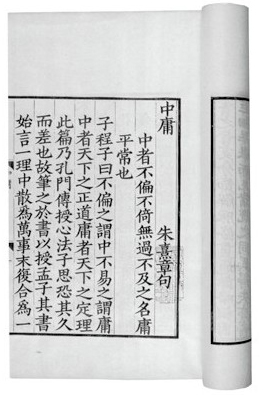 中庸
朱熹章句
中者不偏不倚無過不及之名庸
平常也
子程子曰不偏之謂中不易之謂庸
中者天下之正道庸者天下之定理
此篇乃孔門傳授心法子思恐其久
而差也故筆之於書以授孟子其書
始言一理中散為萬事末復合為一